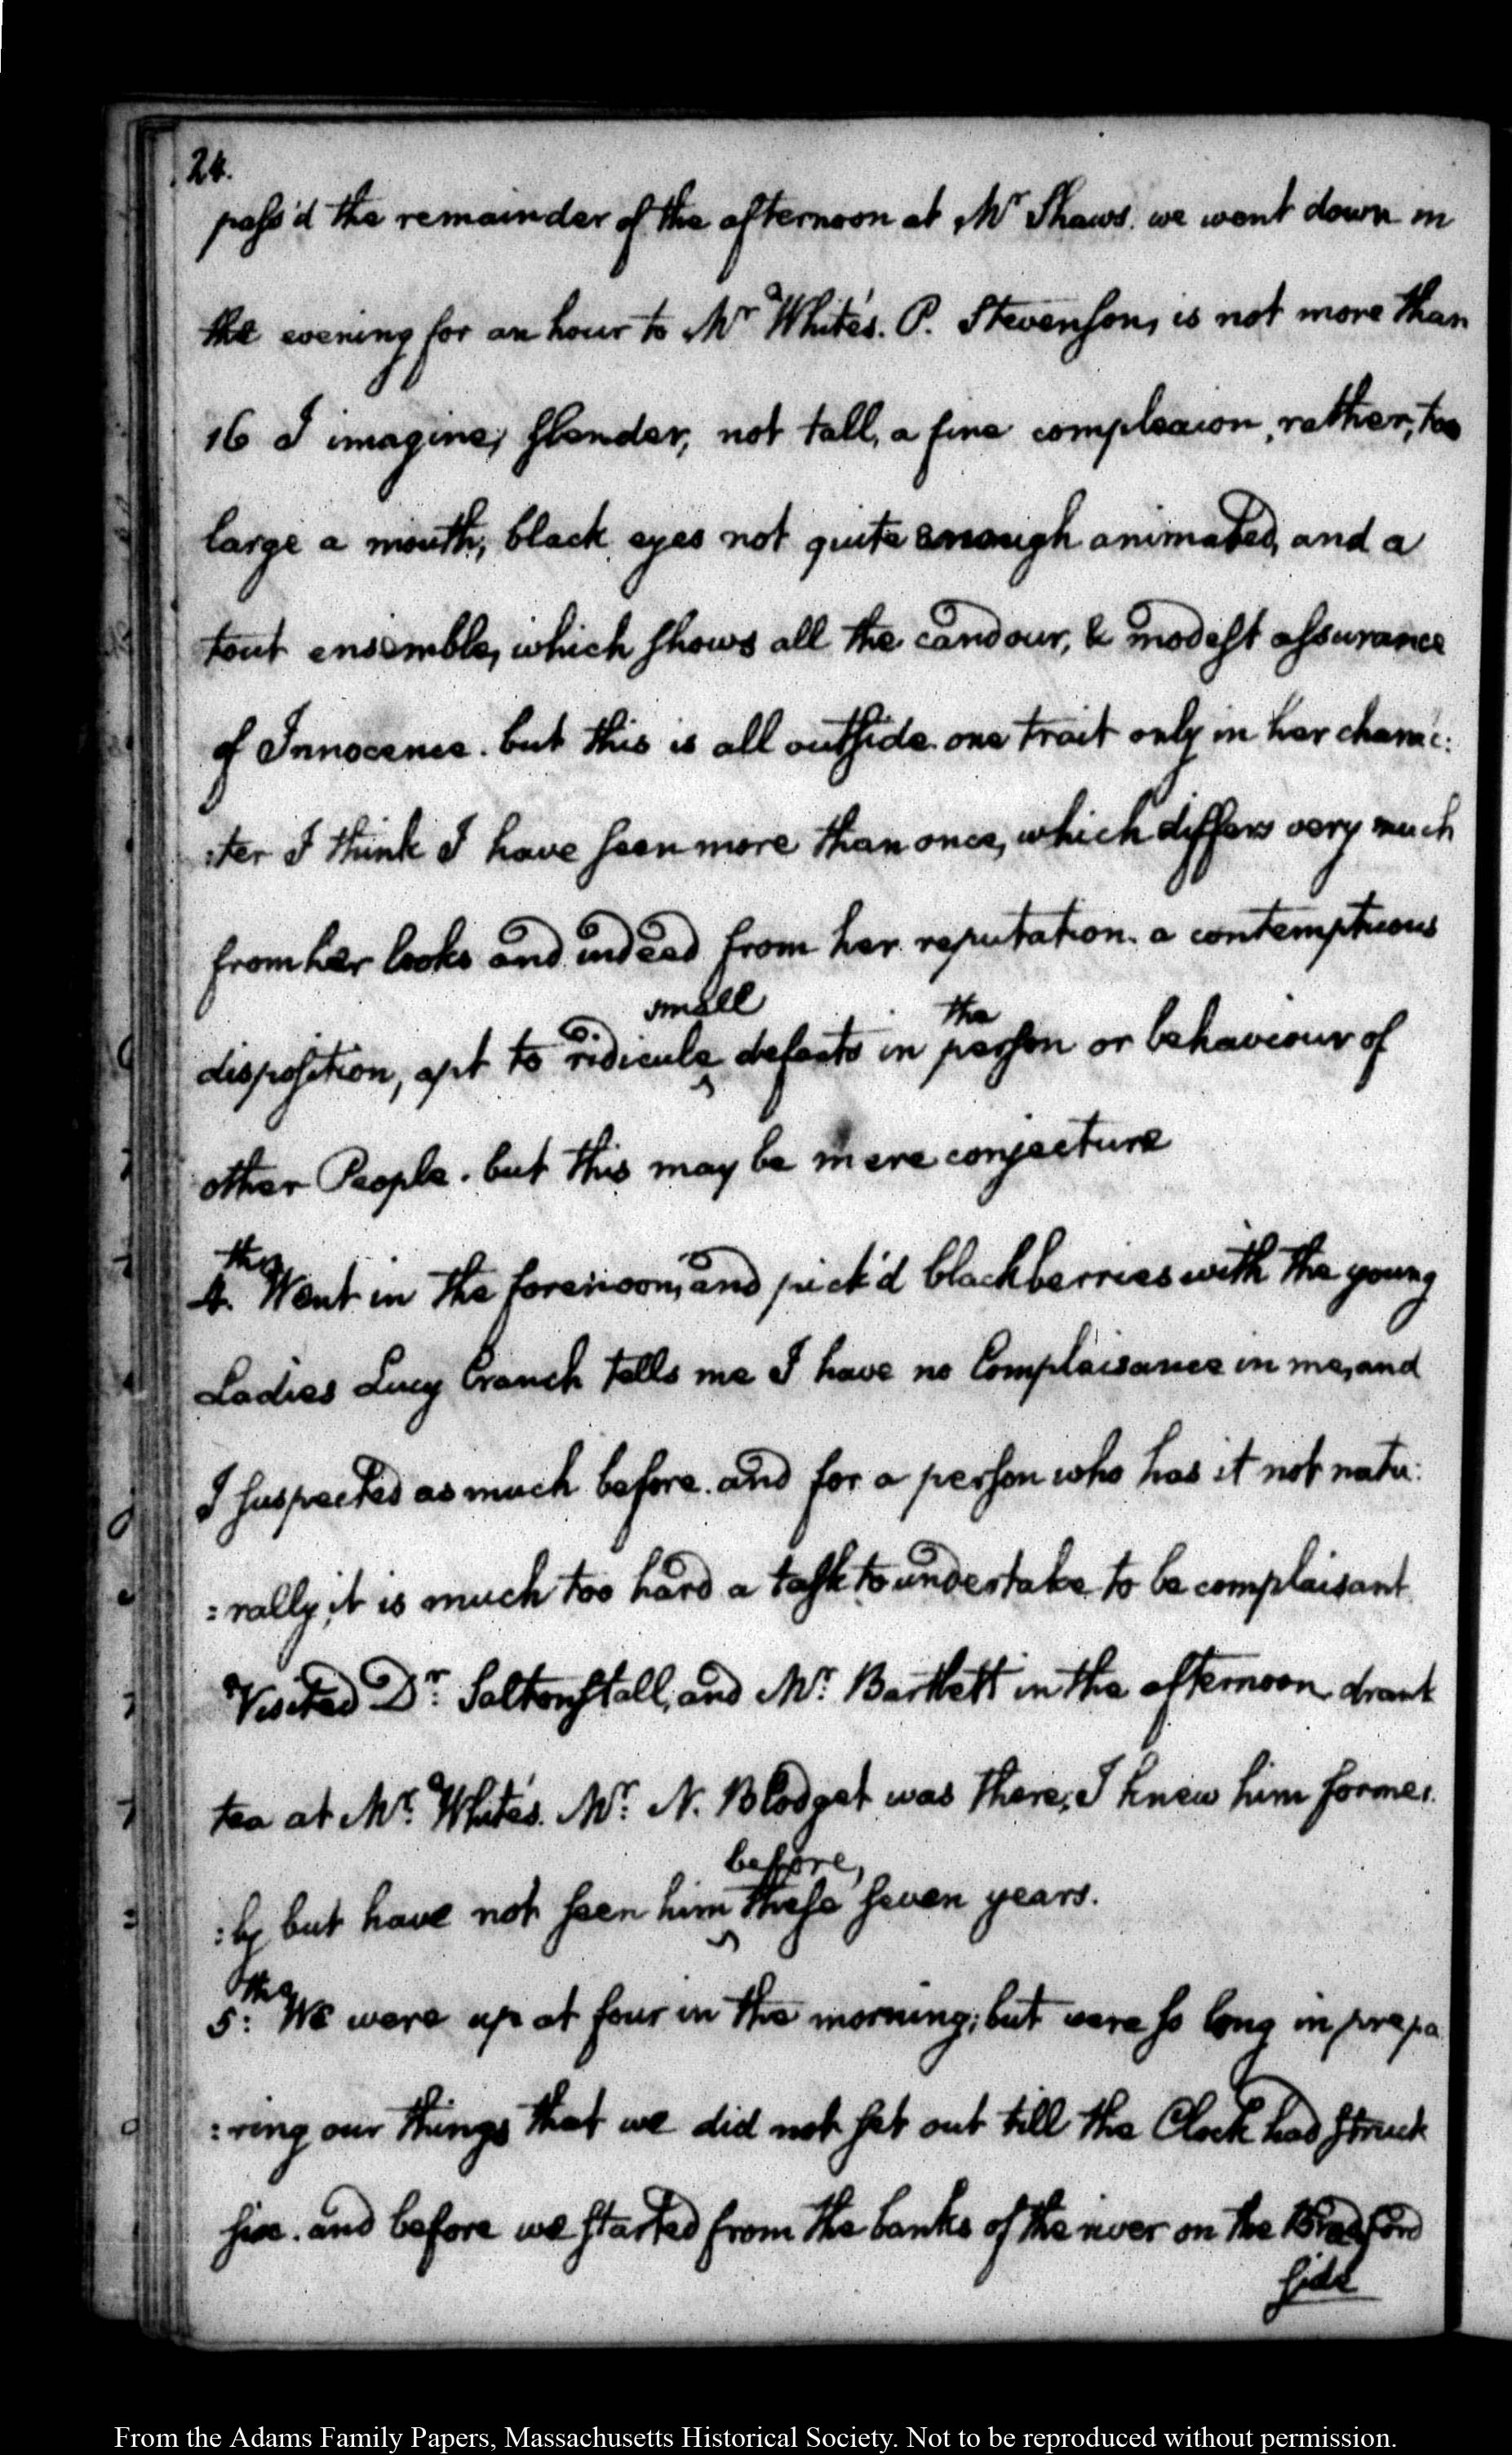 24.
pass'd the remainder of the afternoon at Mr Shaws. we went down in
the evening for an hour to Mr White's. P. Stevenson, is not more than
16 I imagine; slender, not tall, a fine complexion, rather, too
large a mouth, black eyes not quite enough animated, and a
tout ensemble, which shows all the candour, & modest assurance
of Innocence. but this is all outside. one trait only in her charac:
:ter I think I have seen more than once, which differs very much
from her looks and indeed from her reputation. a contemptuous
disposition, apt to ridicule small defects in the person or behaviour of
other People. but this may be mere conjecture
4.th Went in the forenoon, and pick'd blackberries with the young
Ladies Lucy Cranch tells me I have no Complaisance in me, and
I suspected as much before. and for a person who has it not natu:
:rally, it is much too hard a task to undertake to be complaisant.
Visited Dr: Saltonstall, and Mr: Bartlett in the afternoon, drank
tea at Mr: White's. Mr: N. Blodget was there, I knew him former:
:ly but have not seen him before, these seven years.
5:th We were up at four in the morning; but were so long in prepa
:ring our things that we did not set out till the Clock had struck
six. and before we started from the banks of the river on the Bradford
side
From the Adams Family Papers, Massachusetts Historical Society. Not to be reproduced without permission.